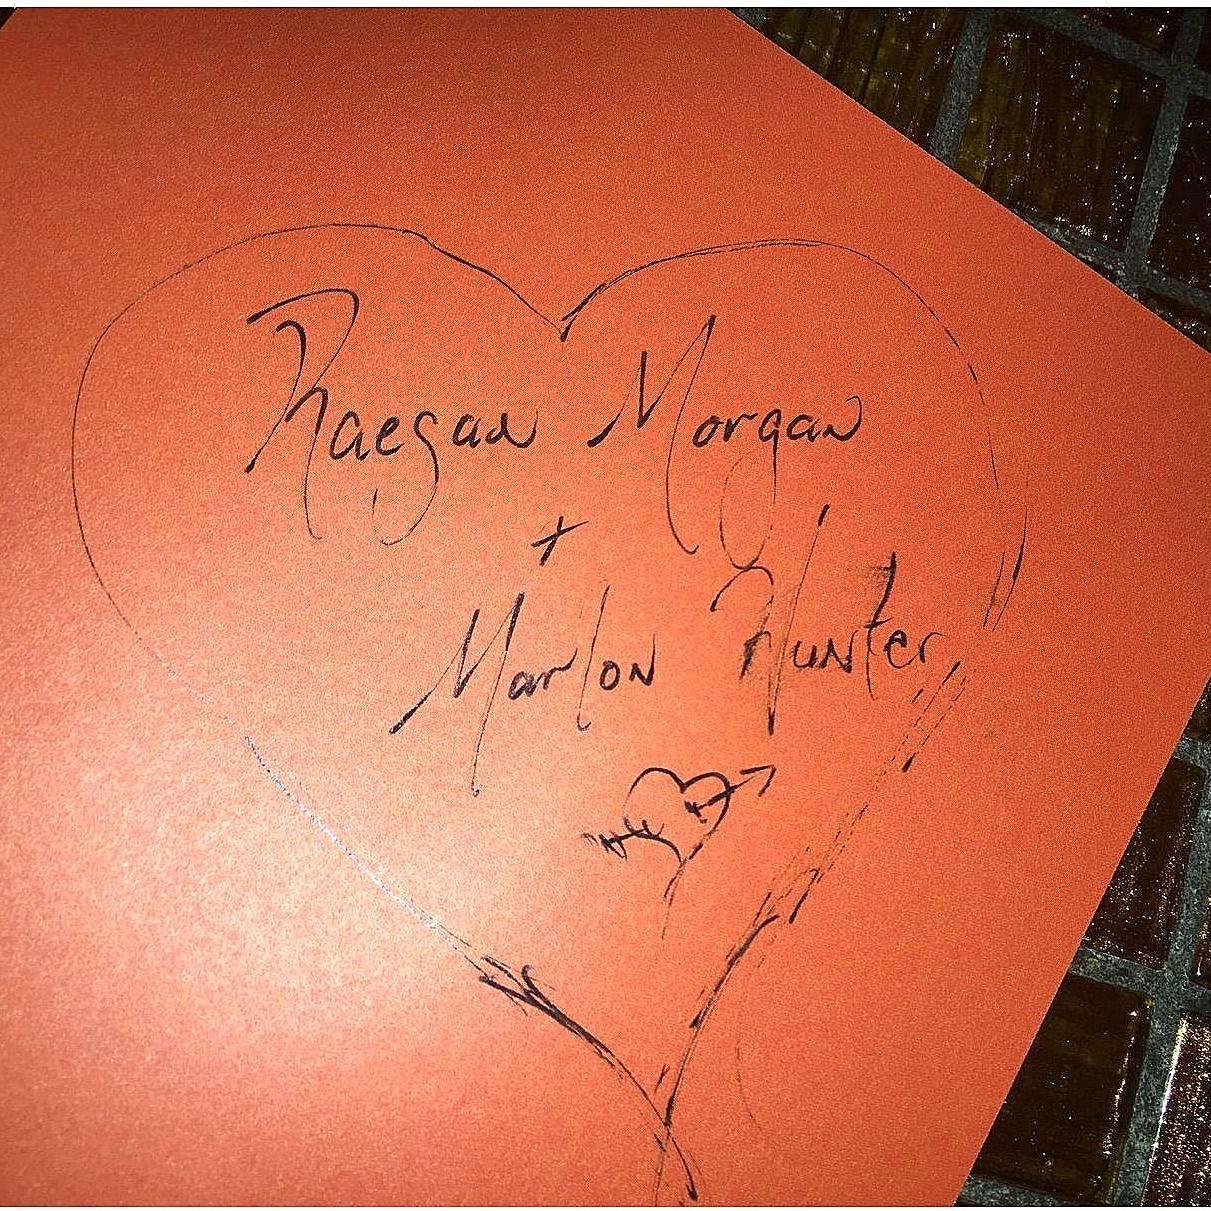 Raegan Morgan
+
Marlon Hunter